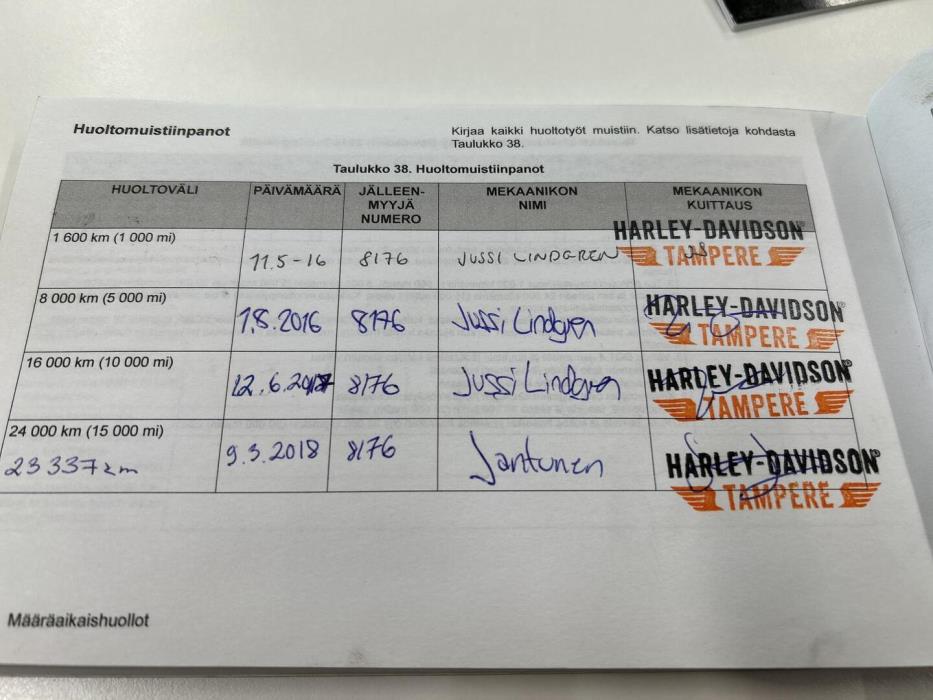 Huoltomuistiinpanot
Kirjaa kaikki huoltotyöt muistiin. Katso lisätietoja kohdasta
Taulukko 38.
Taulukko 38. Huoltomuistiinpanot
HUOLTOVÄLI PÄIVÄMÄÄRÄ JÄLLEEN-
MYYJÄ
NUMERO MEKAANIKON
NIMI MEKAANIKON
KUITTAUS
1 600 km (1 000 mi)
11.5-16 8176 JUSSI LINDGREN
HARLEY-DAVIDSON
TAMPERE
8 000 km (5 000 mi)
1.8.2016 8176 Jussi Lindgren
HARLEY-DAVIDSON
TAMPERE
16 000 km (10 000 mi)
12.6.2017 8176 Jussi Lindgren
HARLEY-DAVIDSON
TAMPERE
24 000 km (15 000 mi)
23 337 km 9.3.2018 8176 Jantunen
HARLEY-DAVIDSON
TAMPERE
Määräaikaishuollot